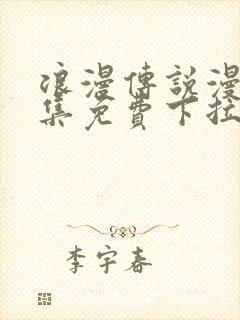 浪漫傳説漫
集免費下拉
李宇春